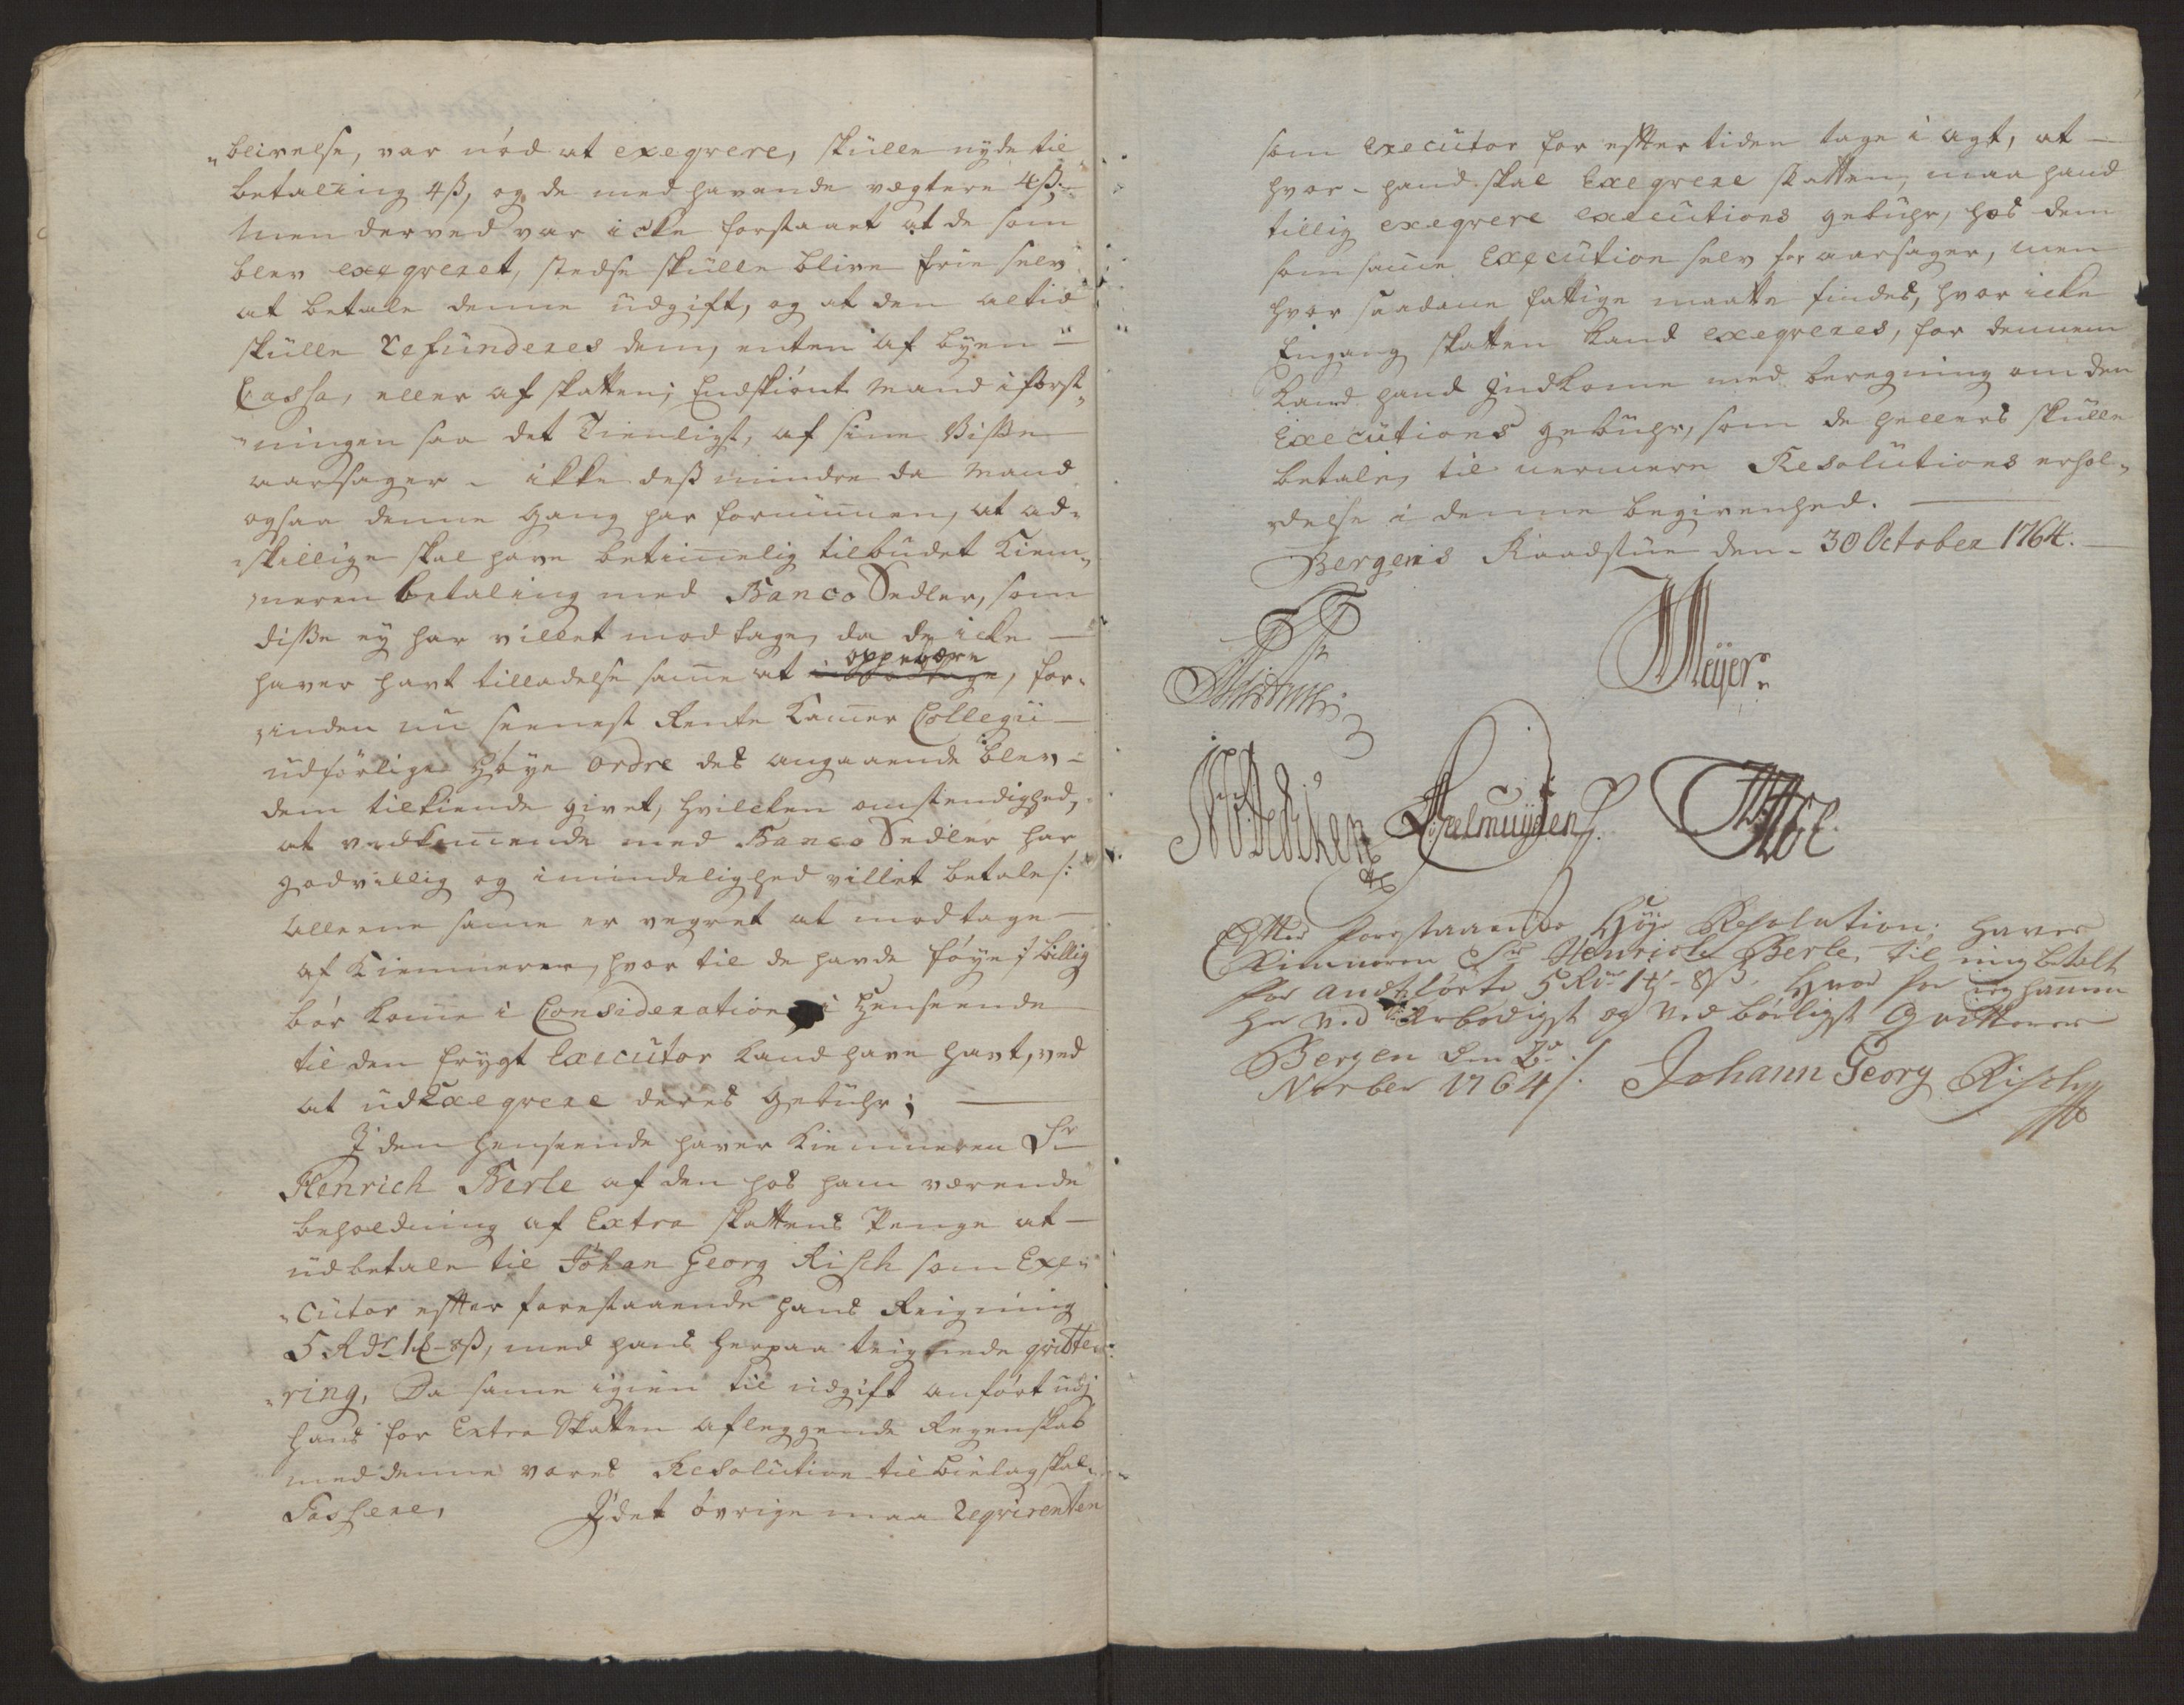 "blivelse, var nód at exeqvere, skulle nyde til
betaling 4ß, og de med havende vegtere 4ß,
Men derved var icke forstaaet at de som
blev exeqveret, stedse skulle blive frie selv
at betale denne udgift, og at den altid
skulle Refunderes dem, enten af byens
Cassa, eller af skatten; Endskiónt Mand i först„
„ningen saa det Tienligst, af sine Visse
aarsager - ikke dess mindre da Mand
ogsaa denne Gang har fornummen, at ad„
„skillige skal have betimelig tilbudet Kiem„
„neren betaling med Banco Sedler, som
disse ey har villet modtage, da de icke
haver havt tilladelse samme at oppebære, for„
„inden nu seenest Rente Kammer Collegii
udförlige Höye Ordre des angaaende blev
dem tilkiende givet, Hvilcken omstendighed,
at vedkommende med Banco Sedler har
godvillig og i mindelighed villet betale /:
alleene samme er vegret at modtage
af Kiemneren, hvor til de havde föye :/ billig
bör komme i Consideration i Henseende
til den frygt Executor kand have havt, ved
at udexeqvere deres Gebuhr;
I den henseende haver Kiemneren Sr
Henrich Berle af den hos ham værende
beholdning af Extra skattens Penge at
udbetale til Johan Georg Risch som Exe„
„cutor efter forestaaende hans Reigning
5 Rdr 1 ẞ 8ß, med hans herpaa teignede qvitte„
„ring, Da samme igien til udgift anfört udj
hans for Extra Skatten aflæggende Regenskab
med denne vores Resolution til bielag skal
Passere, I det övrige maa Reqvirenten
som Executor for effter tiden tage i agt, at
hvor hand skal Exeqvere skatten, maa hand
tillig exeqvere executions gebuhr, hos dem
som samme Execution selv foraarsager, men
hvor saadanne fattige maatte findes, hvor icke
Engang skatten kand exeqveres, for dennem
kand hand Indkomme med beregning om den
Executions gebuhr, som de hellers skulle
betale, til nermere Resolutions erhol„
„delse i denne begivenhed.
Bergens Raadstue den 30 October 1764.
Meyer
Fædder
Hoelmuyden
Efter forestaaende Höye Resolution haver
Kiemneren Sr Henrich Berle til mig betalt
for andförte 5 Rdr 1 - 8ß, hvor for ieg hannem
her ved ærbödigst og ved börligst Qvitterer
Bergen den 2d
Novber 1764 /. Johann Georg Risch